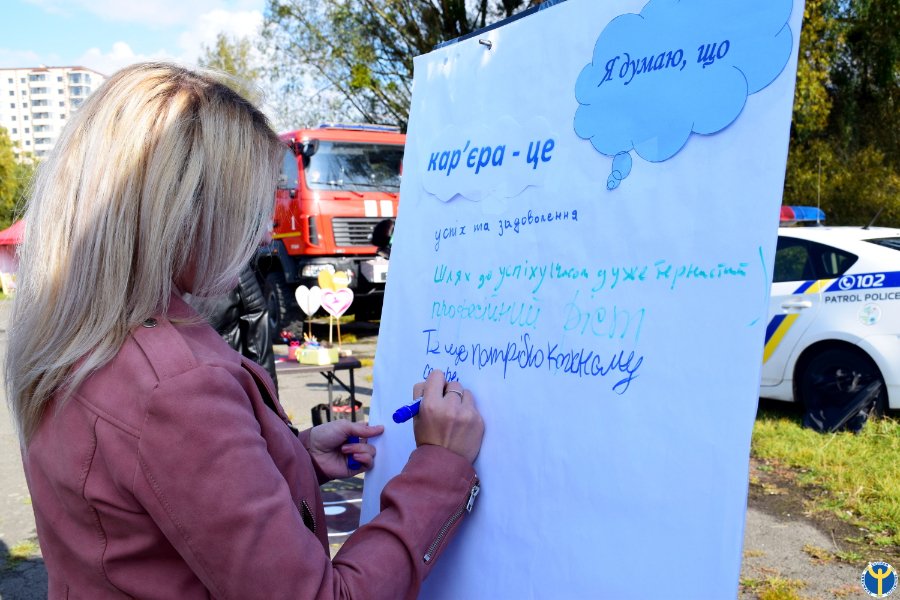 Я думаю, що
кар'єра - це
успіх та задоволення
Шлях до успіху інколи дуже тернистий
професійний ріст
Те що потрібно кожному
102
PATROL POLICE